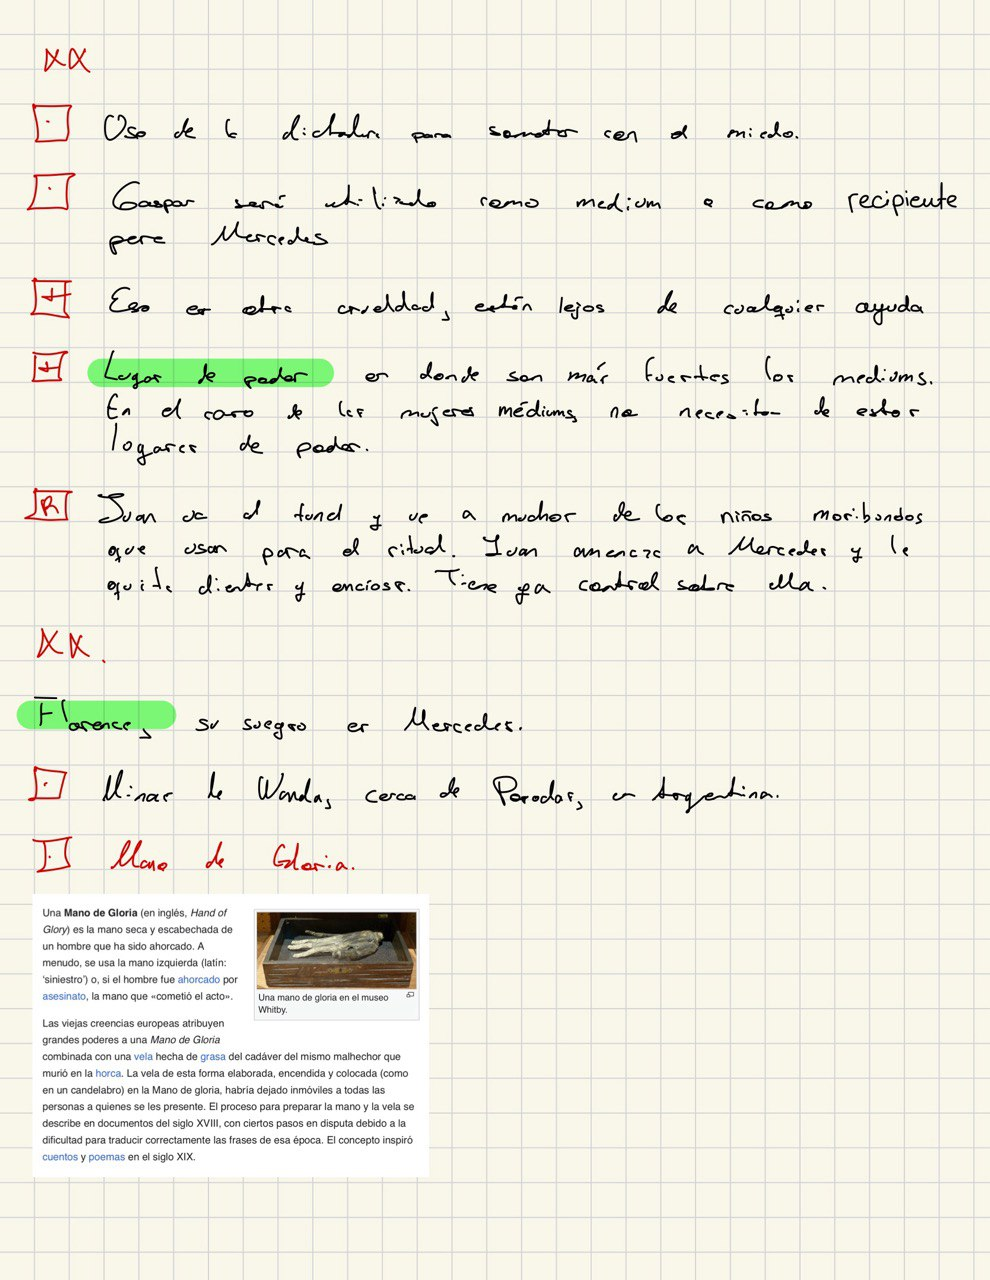 XX
Uso de la dictadura para someter con el miedo.
Gaspar será utilizado como medium o como recipiente
para Mercedes
H Eso es otra crueldad, están lejos de cualquier ayuda
H Lugar de poder es donde son más fuertes los mediums.
En el caso de las mujeres médiums, no necesitan de estos
lugares de poder.
R Juan va al tunel y ve a muchos de los niños moribundos
que usan para el ritual. Juan amenaza a Mercedes y le
quita dientes y encías. Tiene ya control sobre ella.
XX.
Florence, su suegro es Mercedes.
Minas de Wanda, cerca de Posadas, en Argentina.
Mano de Gloria.
Una Mano de Gloria (en inglés, Hand of
Glory) es la mano seca y escabechada de
un hombre que ha sido ahorcado. A
menudo, se usa la mano izquierda (latín:
‘siniestro’) o, si el hombre fue ahorcado por
asesinato, la mano que «cometió el acto».
Una mano de gloria en el museo
Whitby.
Las viejas creencias europeas atribuyen
grandes poderes a una Mano de Gloria
combinada con una vela hecha de grasa del cadáver del mismo malhechor que
murió en la horca. La vela de esta forma elaborada, encendida y colocada (como
en un candelabro) en la Mano de gloria, habría dejado inmóviles a todas las
personas a quienes se les presente. El proceso para preparar la mano y la vela se
describe en documentos del siglo XVIII, con ciertos pasos en disputa debido a la
dificultad para traducir correctamente las frases de esa época. El concepto inspiró
cuentos y poemas en el siglo XIX.